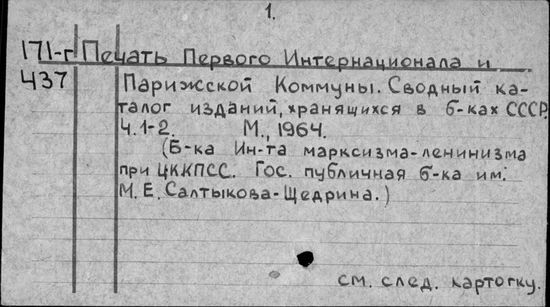 1.
171-г Печать Первого Интернационала и
437 Парижской Коммуны. Сводный ка-
талог изданий, хранящихся в б-ках СССР.
Ч.1-2. М., 1964.
(Б-ка Ин-та марксизма-ленинизма
при ЦККПСС. Гос. публичная б-ка им.
М. Е. Салтыкова-Щедрина.)
см. след. картогку.